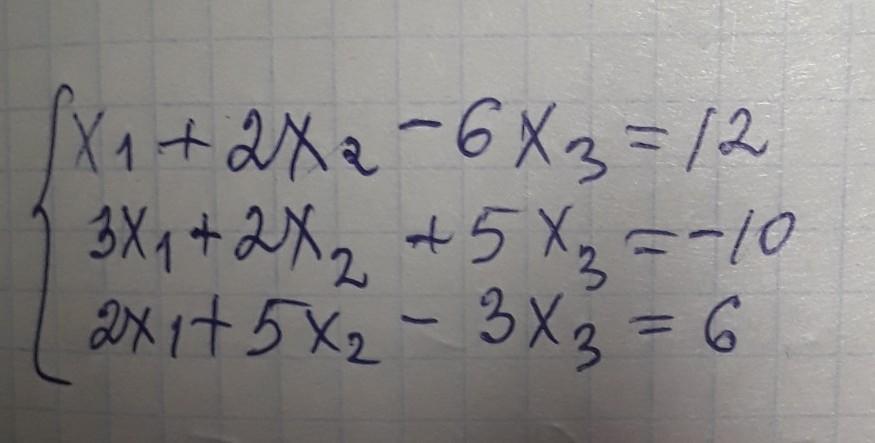 x₁ + 2x₂ - 6x₃ = 12
3x₁ + 2x₂ + 5x₃ = -10
2x₁ + 5x₂ - 3x₃ = 6